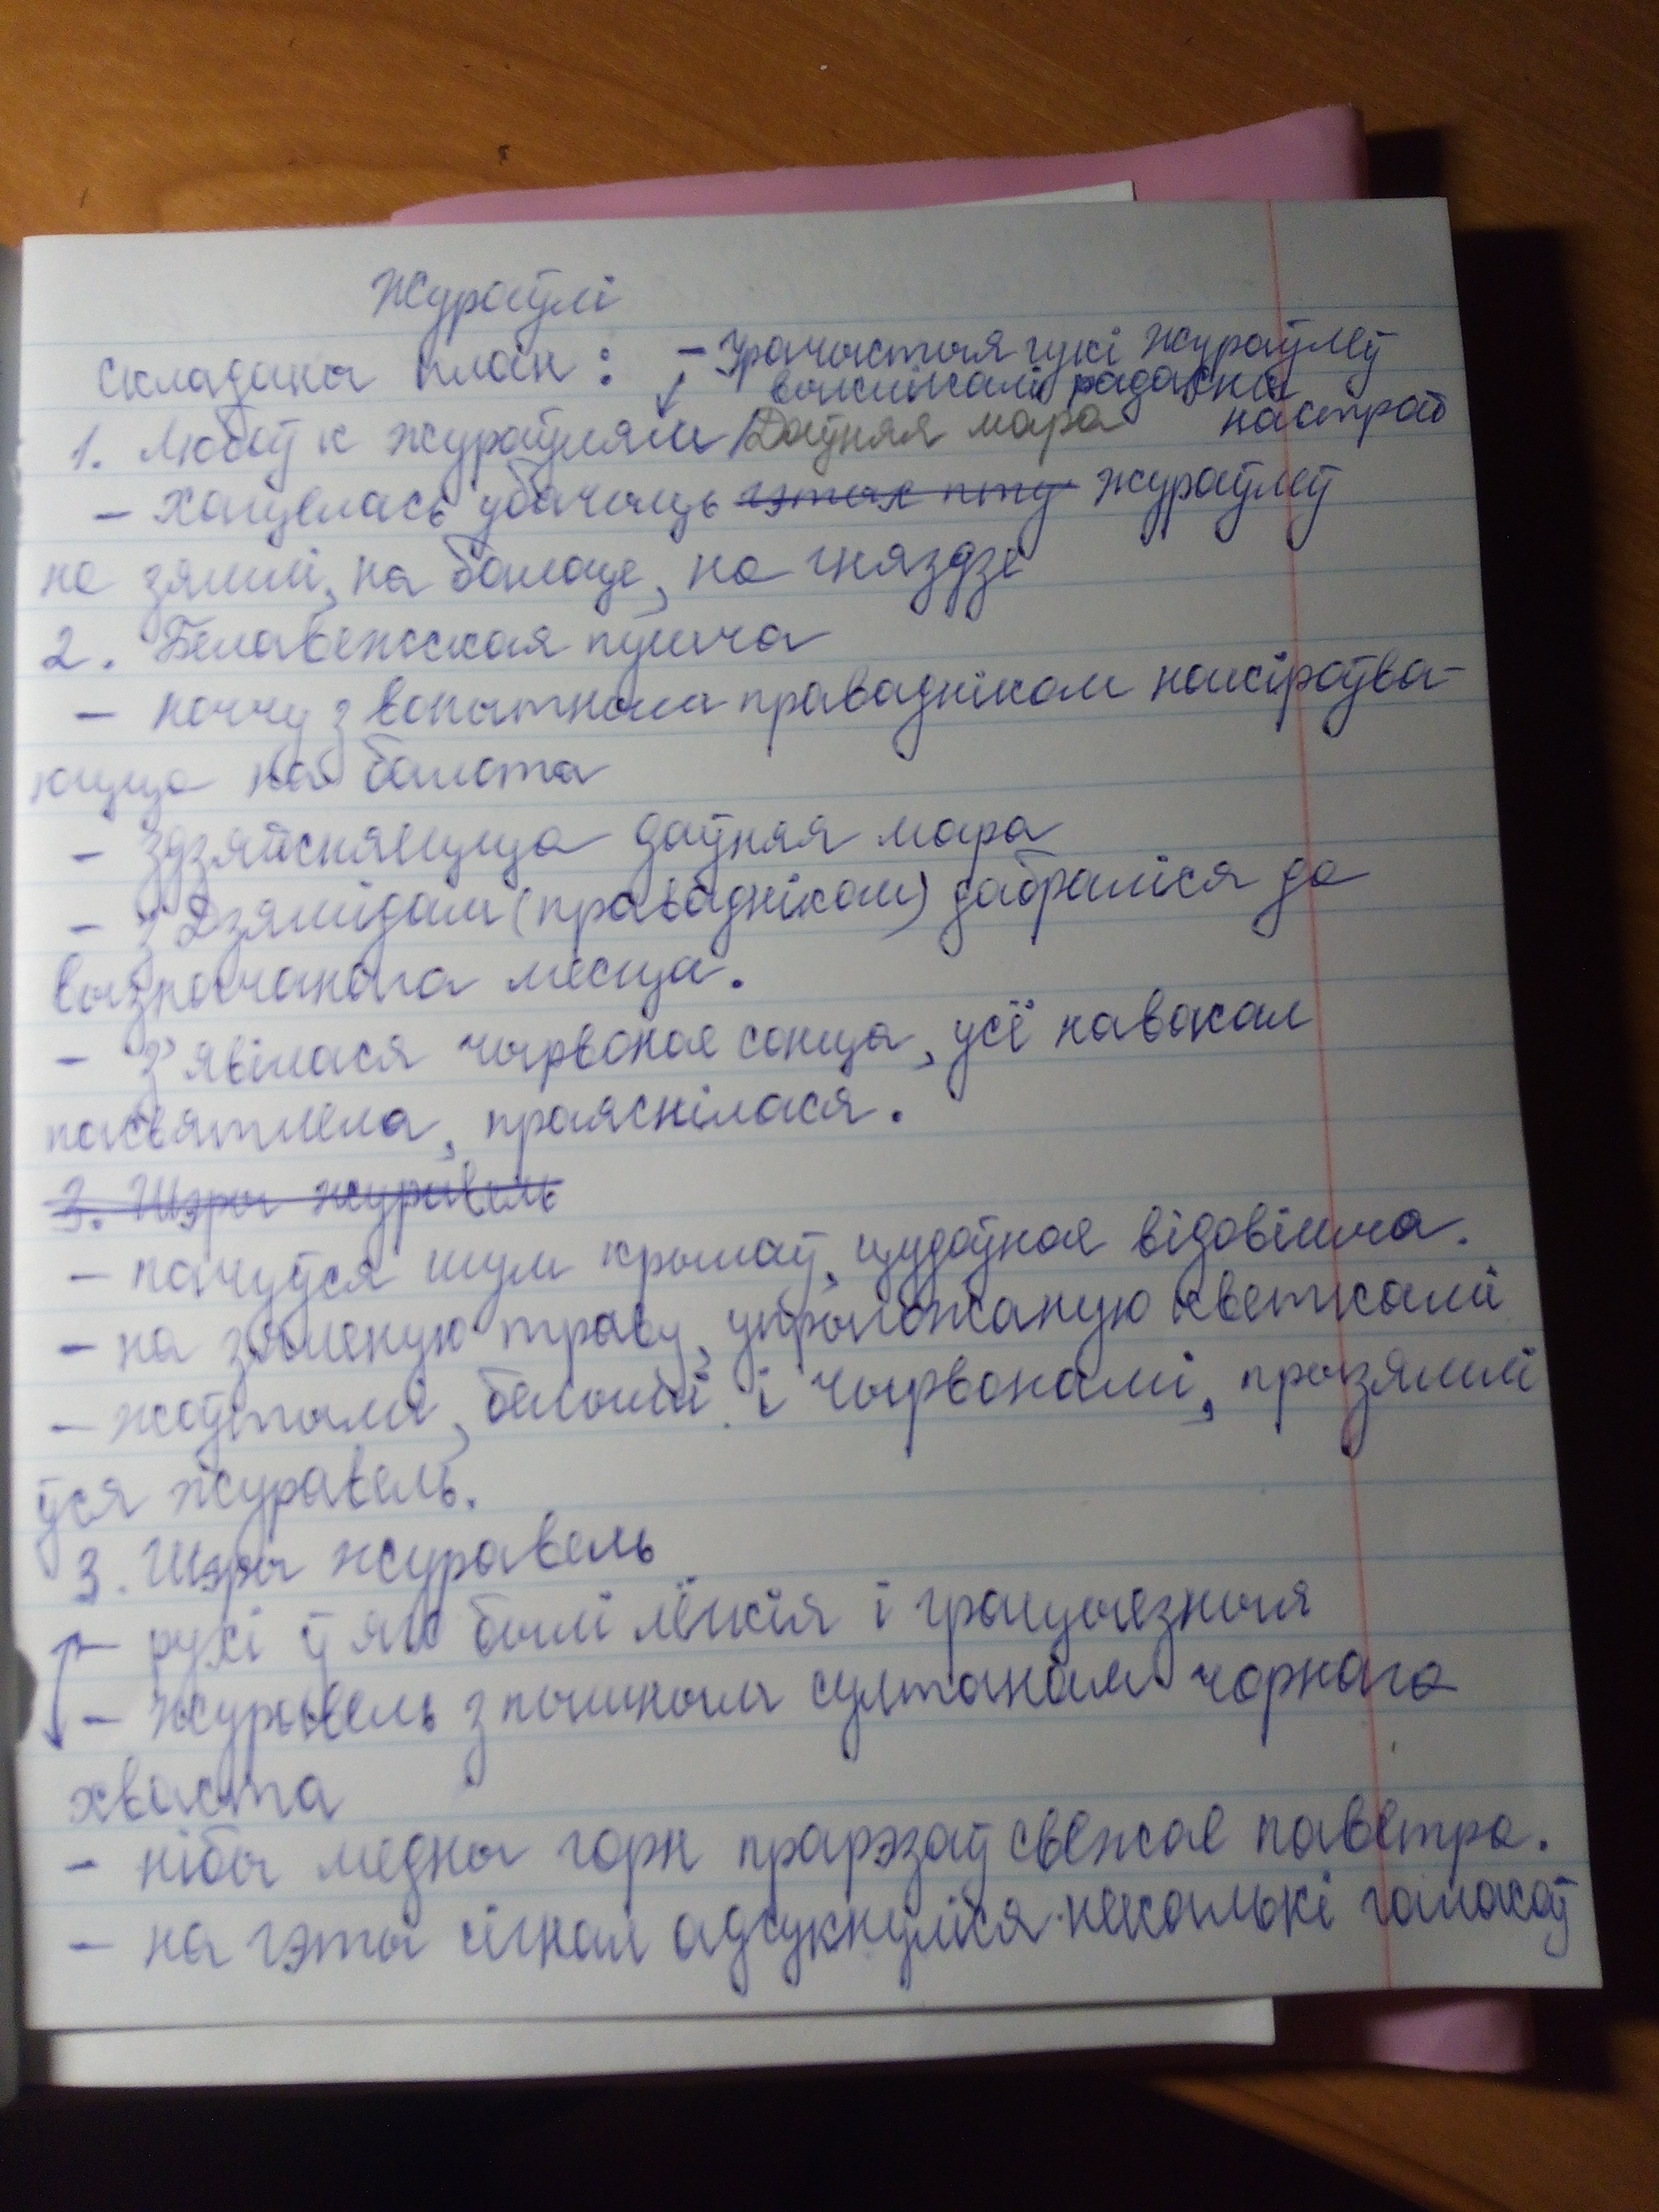 Жураўлі
Складаны план: - Урачыстыя гукі жураўлёў
выклікалі радасны
настрой
1. Любоў к жураўлям / Даўняя мара
- Хацелась убачыць гэтых пту жураўлеў
на зямлі, на балоце, на гняздзе
2. Белавежская пушча
- ноччу з вопытным праваднiком накіроўва-
юцца на балота
- Здзяйсняецца даўняя мара
- З Дзямідам (праваднiком) дабраліся да
вызначанага месца.
- З'явілася чырвонае сонца, усё навакол
пасвятлела, праяснілася.
3. Шэры журавель
- пачуўся шум крылаў, цудоўнае відовішча.
- на зялёную траву, упрыгожаную кветкамі
- жоўтымі, белымі і чырвонамі, прызямлі
ўся журавель.
3. Шэры журавель
- рухі ў яго былі лёгкія і грацыёзныя
- журавель з пышным султанам чорнага
хваста
- нібы медны горн прарэзаў свежае паветра.
- на гэты сігнал адгукнуліся некалькі галасоў